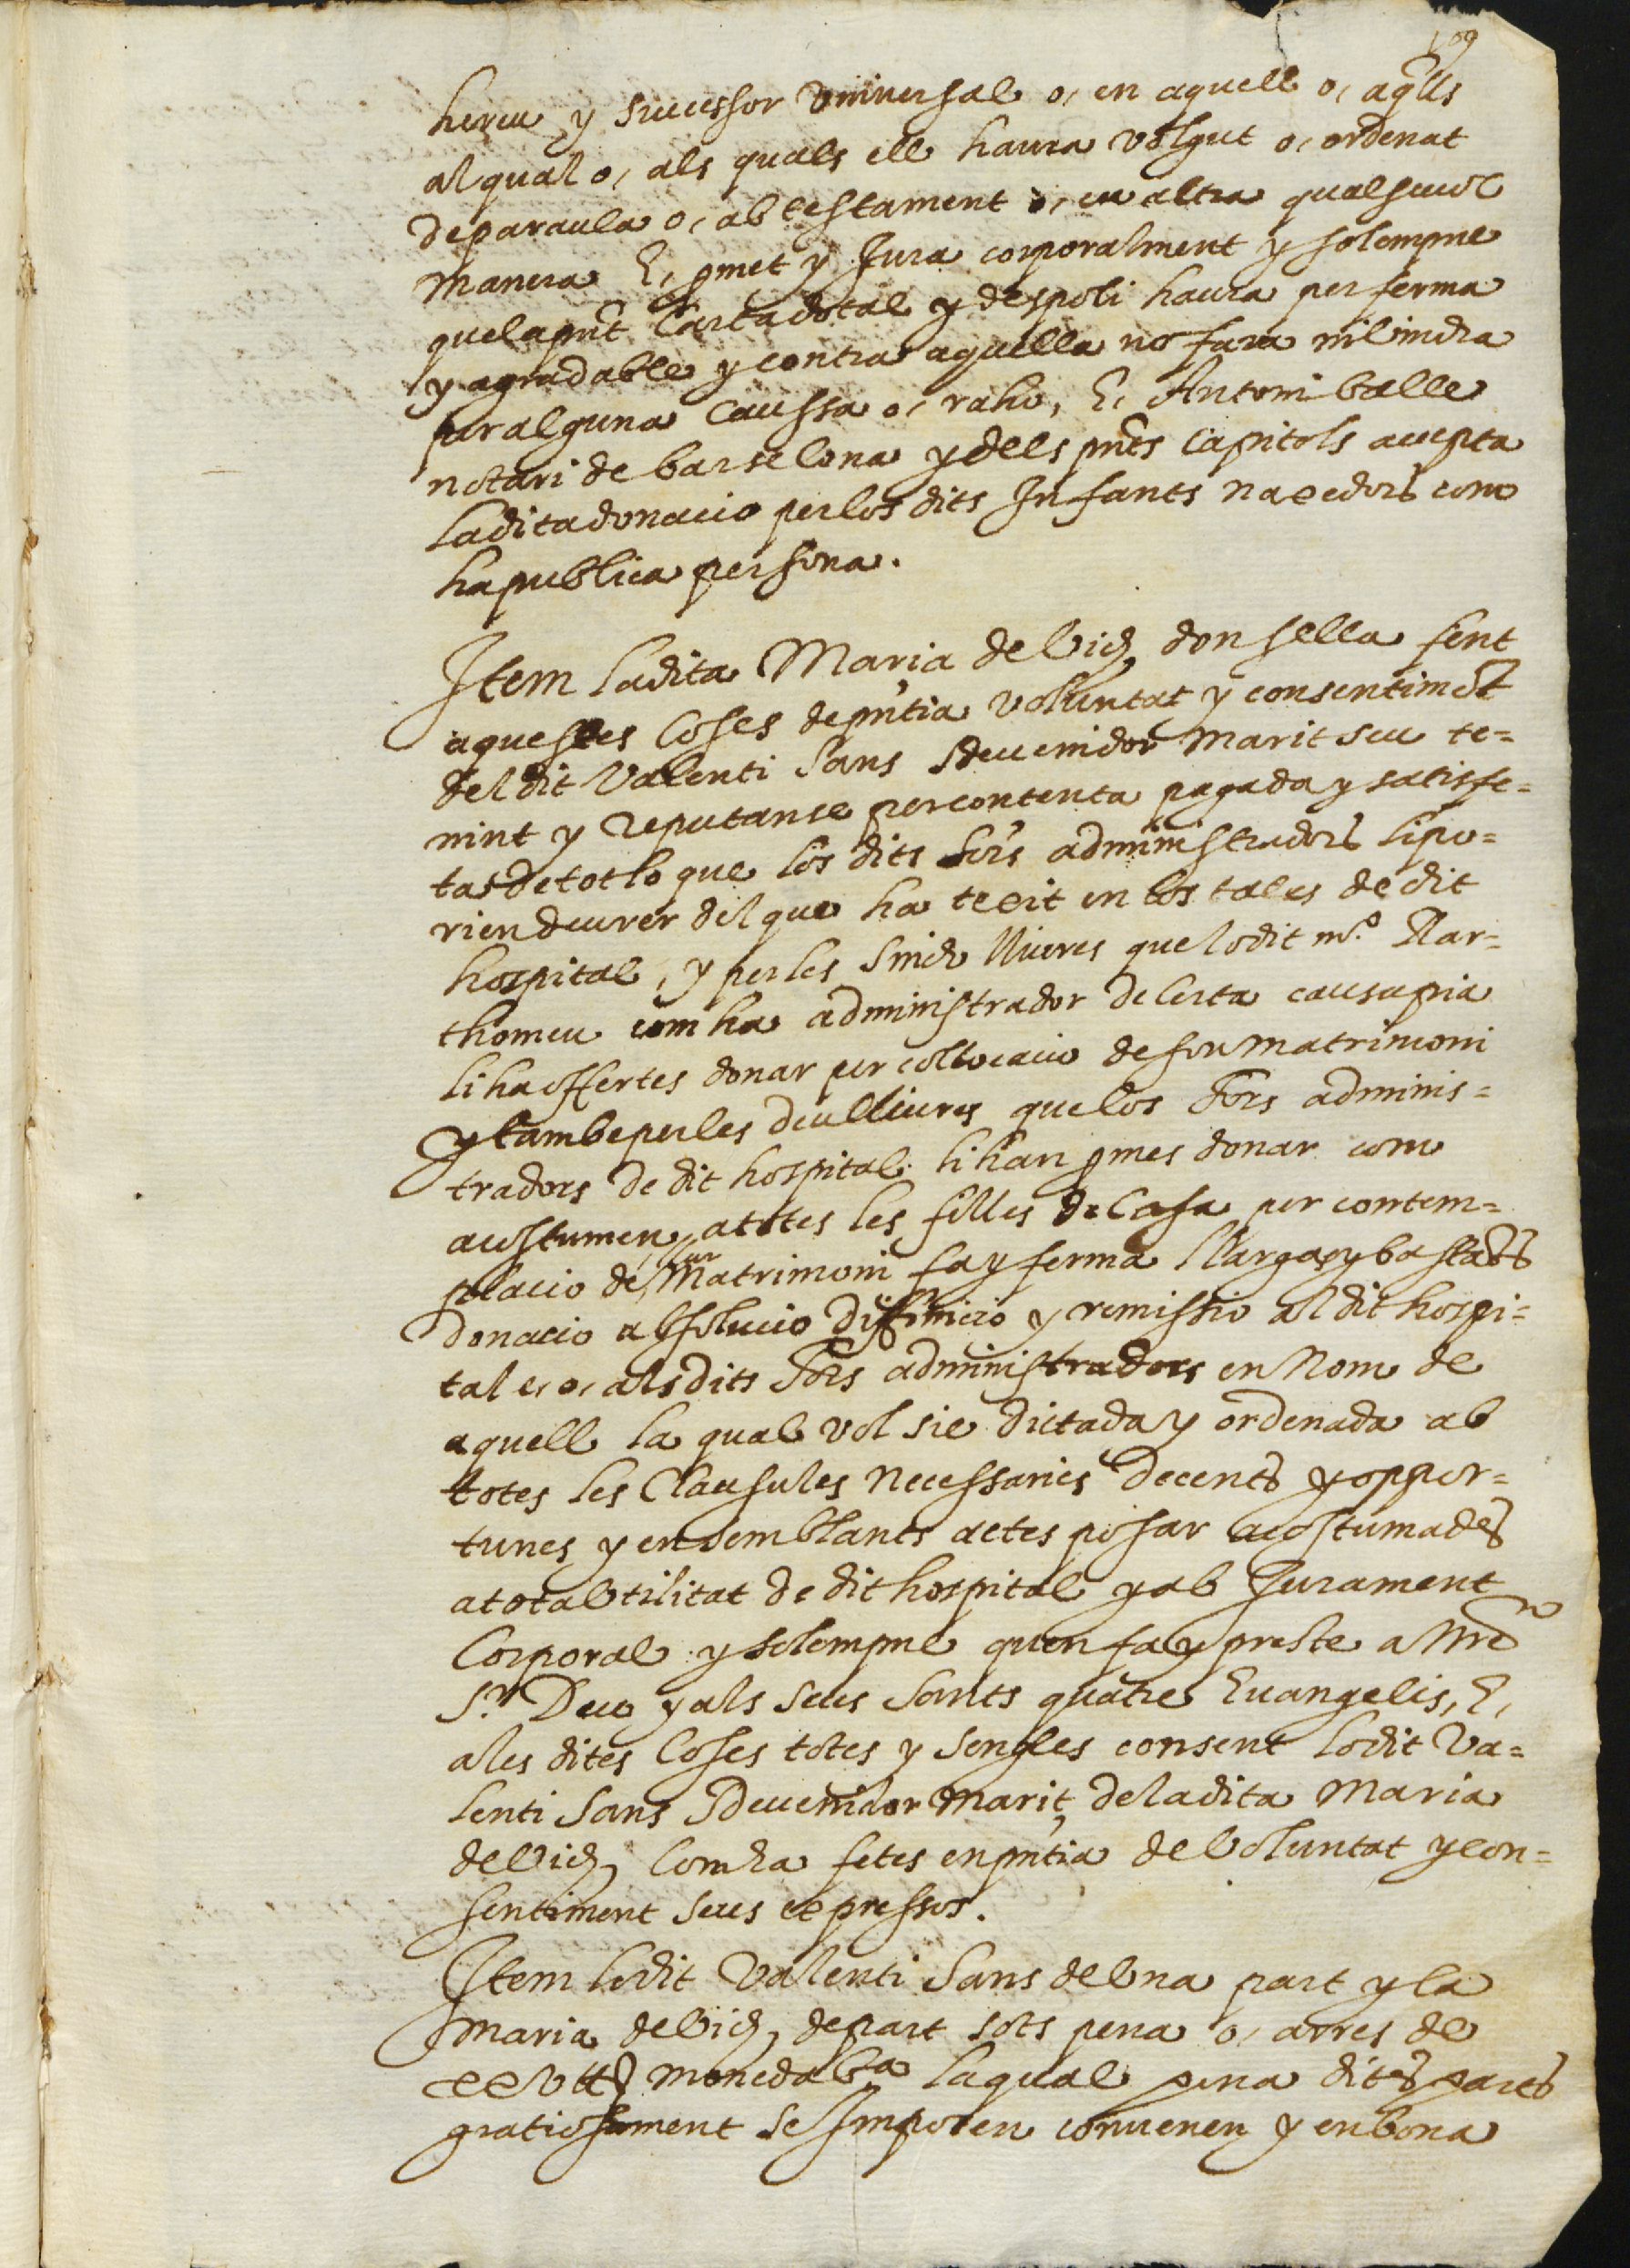 109
hereu y successor vniuersal o, en aquell o, aqlls
al qual o, als quals ell haura volgut o, ordenat
de paraula o, ab testament o, en altra qualseuol
manera E, pmet y Jura corporalment y solempne
que la pnt Carta dotal y despoli haura per ferma
y agradable y contra aquella no fara nil vindra
per alguna caussa o, raho, E, Antoni batlle
notari de barselona y dels pnts capitols accepta
la dita donacio per los dits Infants naxedors com
ha publica persona.
Item la dita Maria de Vich donsella fent
aquestes coses de pntia voluntat y consentimet
del dit Valenti Sans sdeuenidor marit seu te=
nint y reputanse per contenta pagada y satisfe=
ta de tot lo que los dits Sors administradors lipo=
rien deurer del que ha texit en los talers de dit
hospital, y per les sinch lliures que lo dit mº. Bar=
thomeu com ha administrador de certa causa pia
li ha offertes donar per collocacio de son matrimoni
y tambe per les deu lliures que los Sors adminis=
tradors de dit hospital li han pmes donar com
acostumen a totes les filles de Casa per contem=
placio de llur Matrimoni fa y ferma llarga y bastats
donacio absolucio diffinicio y remissio al dit hospi=
tal e, o, als dits Sors administradors en nom de
aquell la qual vol sie dictada y ordenada ab
totes les Clausules necessaries decents y oppor=
tunes y en semblants actes posar acostumades
a tota vtilitat de dit hospital y ab Jurament
Corporal y solempne quen fa y preste a Nre
Sr. Deu y als seus Sants quatre Euangelis, E,
a les dites Coses totes y sengles consent lo dit Va=
lenti Sans sdeuenidor marit de la dita Maria
de Vich, Com ha fetes en pntia de Voluntat y con=
sentiment seus expressos.
Item lo dit Valenti Sans de vna part y la
Maria de Vich, de part sots pena o, arres de
xxv ll moneda ba la qual pena dites parts
gratiosament se Imposen conuenen y en bona